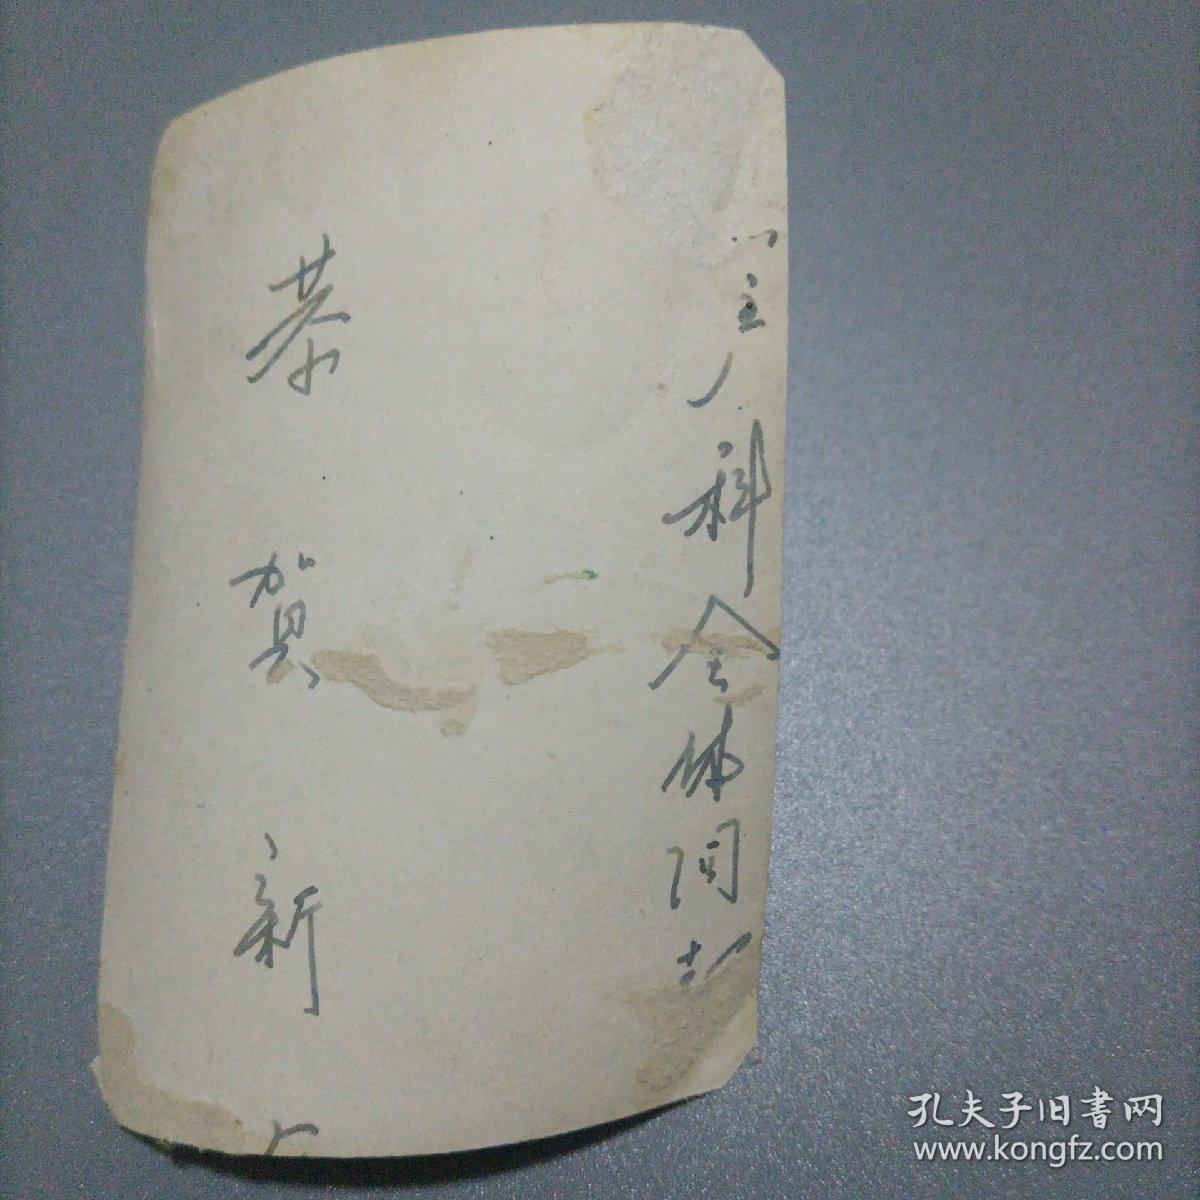 科全体同
恭贺新
孔夫子旧書网
www.kongfz.com